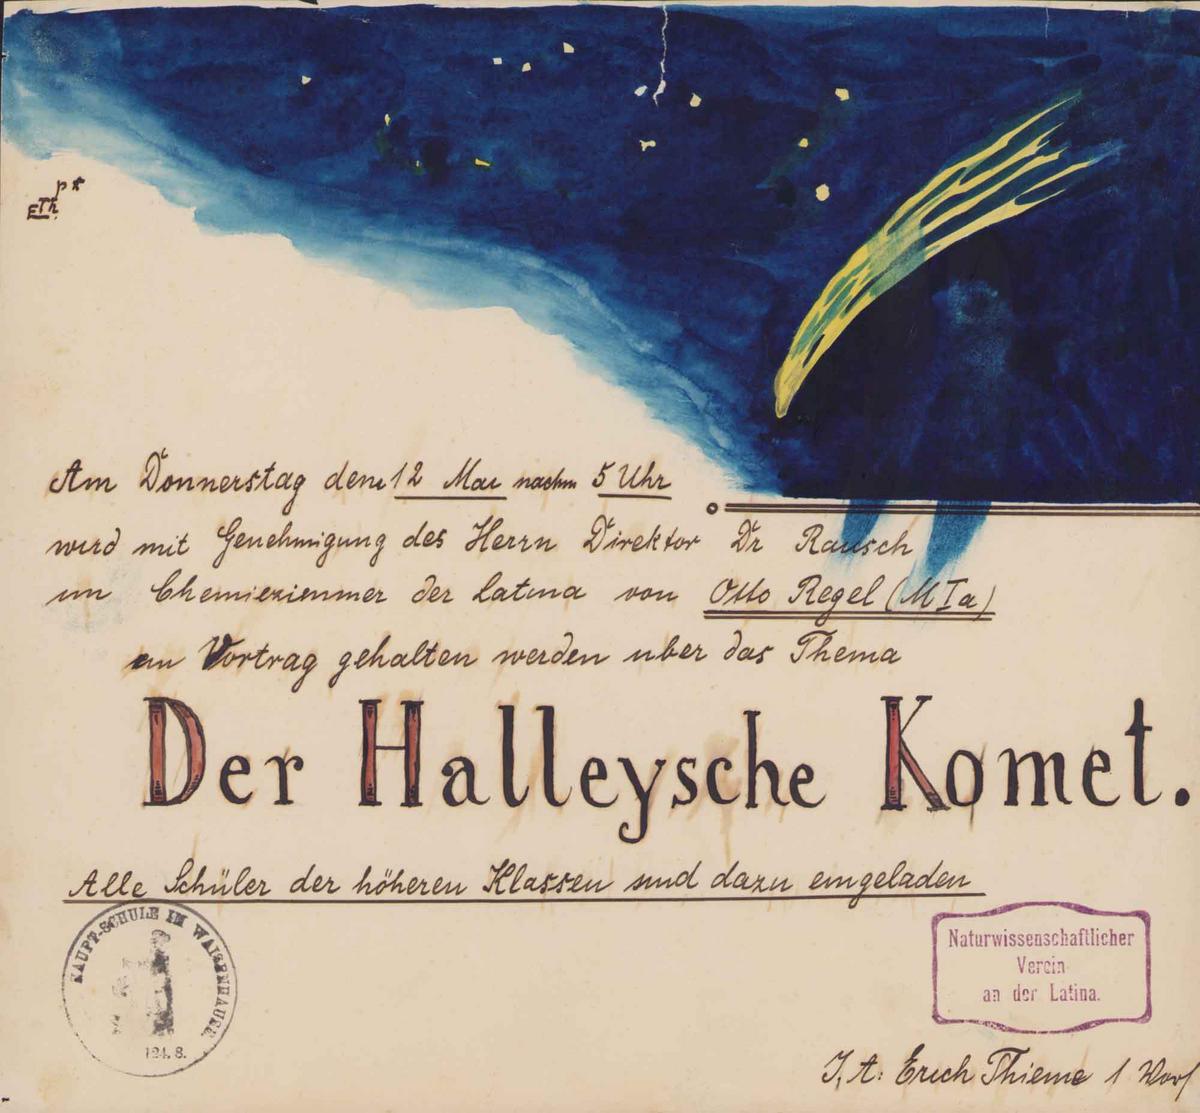 Am Donnerstag den 12 Mai nachm 5 Uhr
wird mit Genehmigung des Herrn Direktor Dr Rausch
im Chemiezimmer der Latina von Otto Regel (M I a)
ein Vortrag gehalten werden über das Thema
Der Halleysche Komet.
Alle Schüler der höheren Klassen sind dazu eingeladen
HAUPT-SCHULE IM WAISENHAUSE
Naturwissenschaftlicher
Verein
an der Latina.
I. A: Erich Thieme 1 Vors